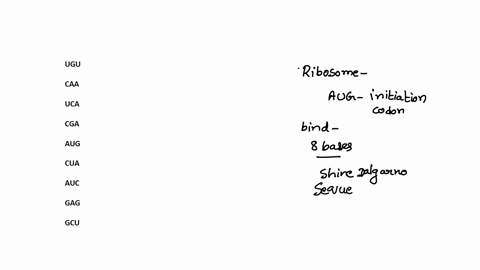 UGU
CAA
UCA
CGA
AUG
CUA
AUC
GAG
GCU
Ribosome-
AUG- initiation
codon
bind-
8 bases
Shire Dalgarno